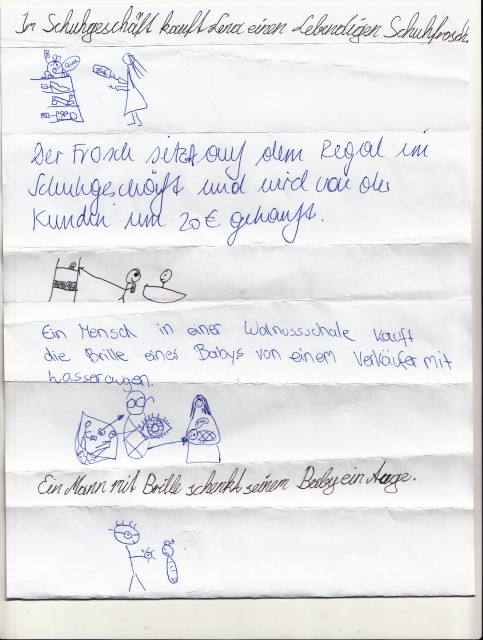 Im Schuhgeschäft kauft Lena einen Lebendigen Schuhfrosch.
Der Frosch sitzt auf dem Regal im
Schuhgeschäft und wird von der
Kundin um 20€ gekauft.
Ein Mensch in einer Walnussschale kauft
die Brille eines Babys von einem Verkäufer mit
Wasseraugen.
Ein Mann mit Brille schenkt seinem Baby ein Auge.